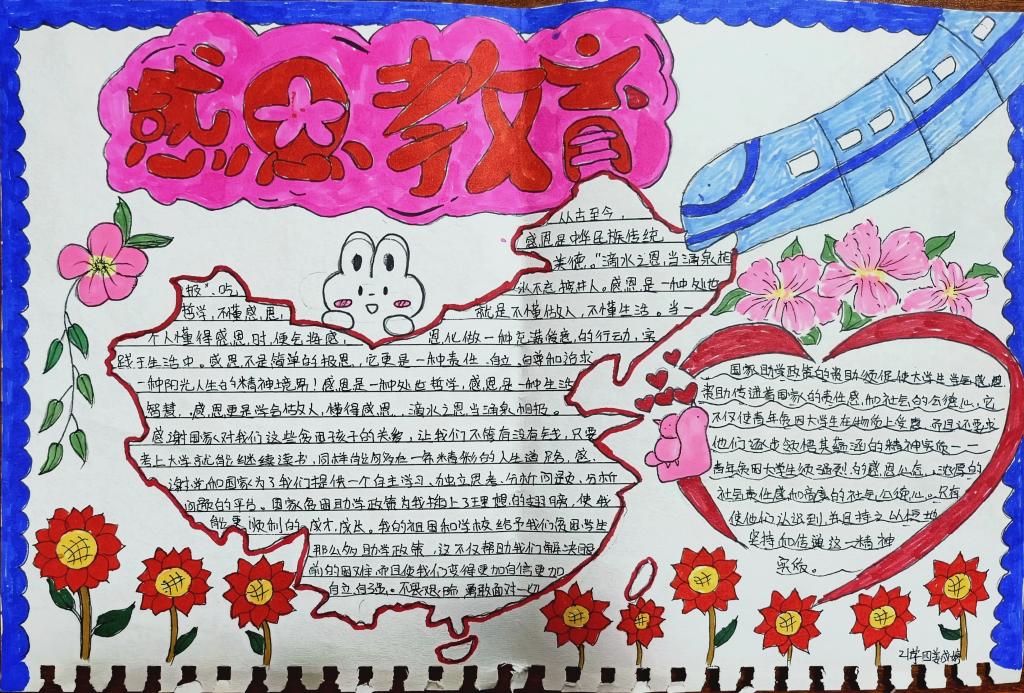 感恩教育
从古至今，
感恩是中华民族传统
美德。"滴水之恩,当涌泉相
报"、吃水不忘挖井人。感恩是一种处世
哲学,不懂感恩,就是不懂做人,不懂生活。当一
个人懂得感恩时,便会将感恩化做一种充满爱意的行动,实
践于生活中。感恩不是简单的报恩,它更是一种责任、自立、自尊和追求
一种阳光人生的精神境界!感恩是一种处世哲学,感恩是一种生活
智慧、感恩更是学会做人,懂得感恩、滴水之恩当涌泉相报。
感谢国家对我们这些贫困孩子的关爱,让我们不管有没有钱,只要
考上大学就能继续读书,同样能拥有一条精彩的人生道路,感
谢党和国家为了我们提供一个自主学习、独立思考、分析问题、分析
问题的平台。国家贫困助学政策为我插上了理想的翅膀,使我
能更顺利的成才,成长。我的祖国和学校给予我们贫困学生
那么多助学政策,这不仅帮助我们解决眼
前的困难,而且使我们变得更加自信更加
自立,自强。不畏艰险,勇敢面对一切
国家助学政策的资助须促使大学生学会感恩
资助传递着国家的责任感和社会的公德心,它
不仅使青年贫困大学生在物质上受惠,而且还要求
他们逐步领悟其蕴涵的精神实质——
青年贫困大学生须强烈的感恩心态、浓厚的
社会责任感和高度的社会公德心。只有
使他们认识到,并且持之以恒地
坚持和传递这一精神
实质。